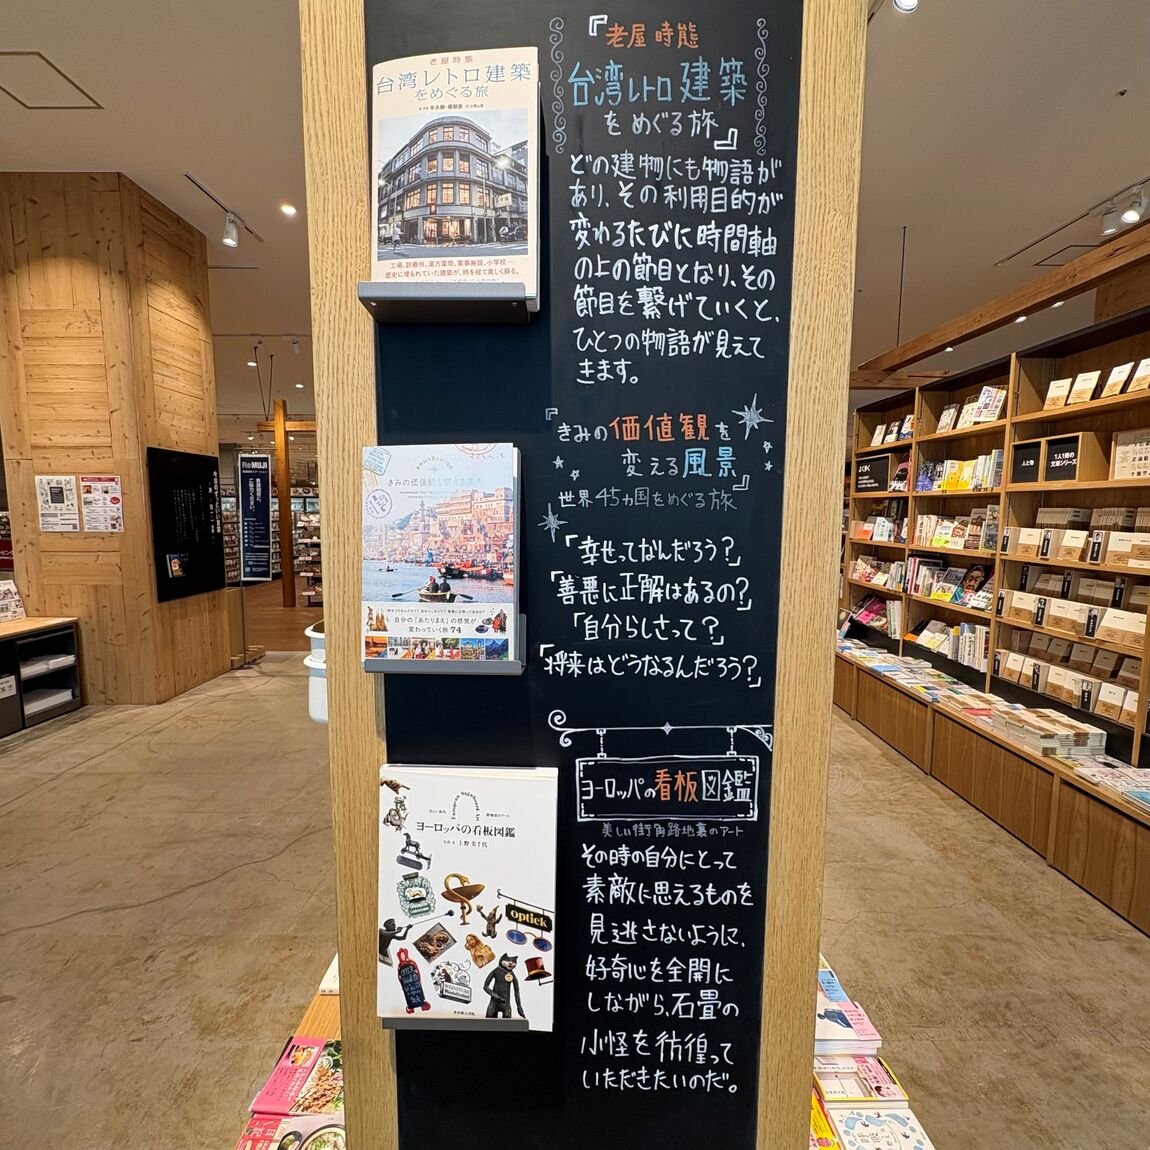 『老屋時態
台湾レトロ建築
をめぐる旅』
どの建物にも物語が
あり、その利用目的が
変わるたびに時間軸
の上の節目となり、その
節目を繋げていくと、
ひとつの物語が見えて
きます。
『きみの価値観を
変える風景』
世界45ヵ国をめぐる旅
「幸せってなんだろう?」
「善悪に正解はあるの?」
「自分らしさって?」
「将来はどうなるんだろう?」
ヨーロッパの看板図鑑
美しい街角路地裏のアート
その時の自分にとって
素敵に思えるものを
見逃さないように、
好奇心を全開に
しながら、石畳の
小怪を彷徨って
いただきたいのだ。
老屋時態
台湾レトロ建築
をめぐる旅
工場、診療所、漢方薬局、軍事施設、小学校―
歴史に埋もれていた建築が、時を経て美しく蘇る。
きみの価値観を変える風景
自分の「あたりまえ」の感覚が
変わっていく旅 74
ヨーロッパの看板図鑑
写真・文 上野美千代
optiek
ReMUJI
人と物
1人1冊の
文庫シリーズ